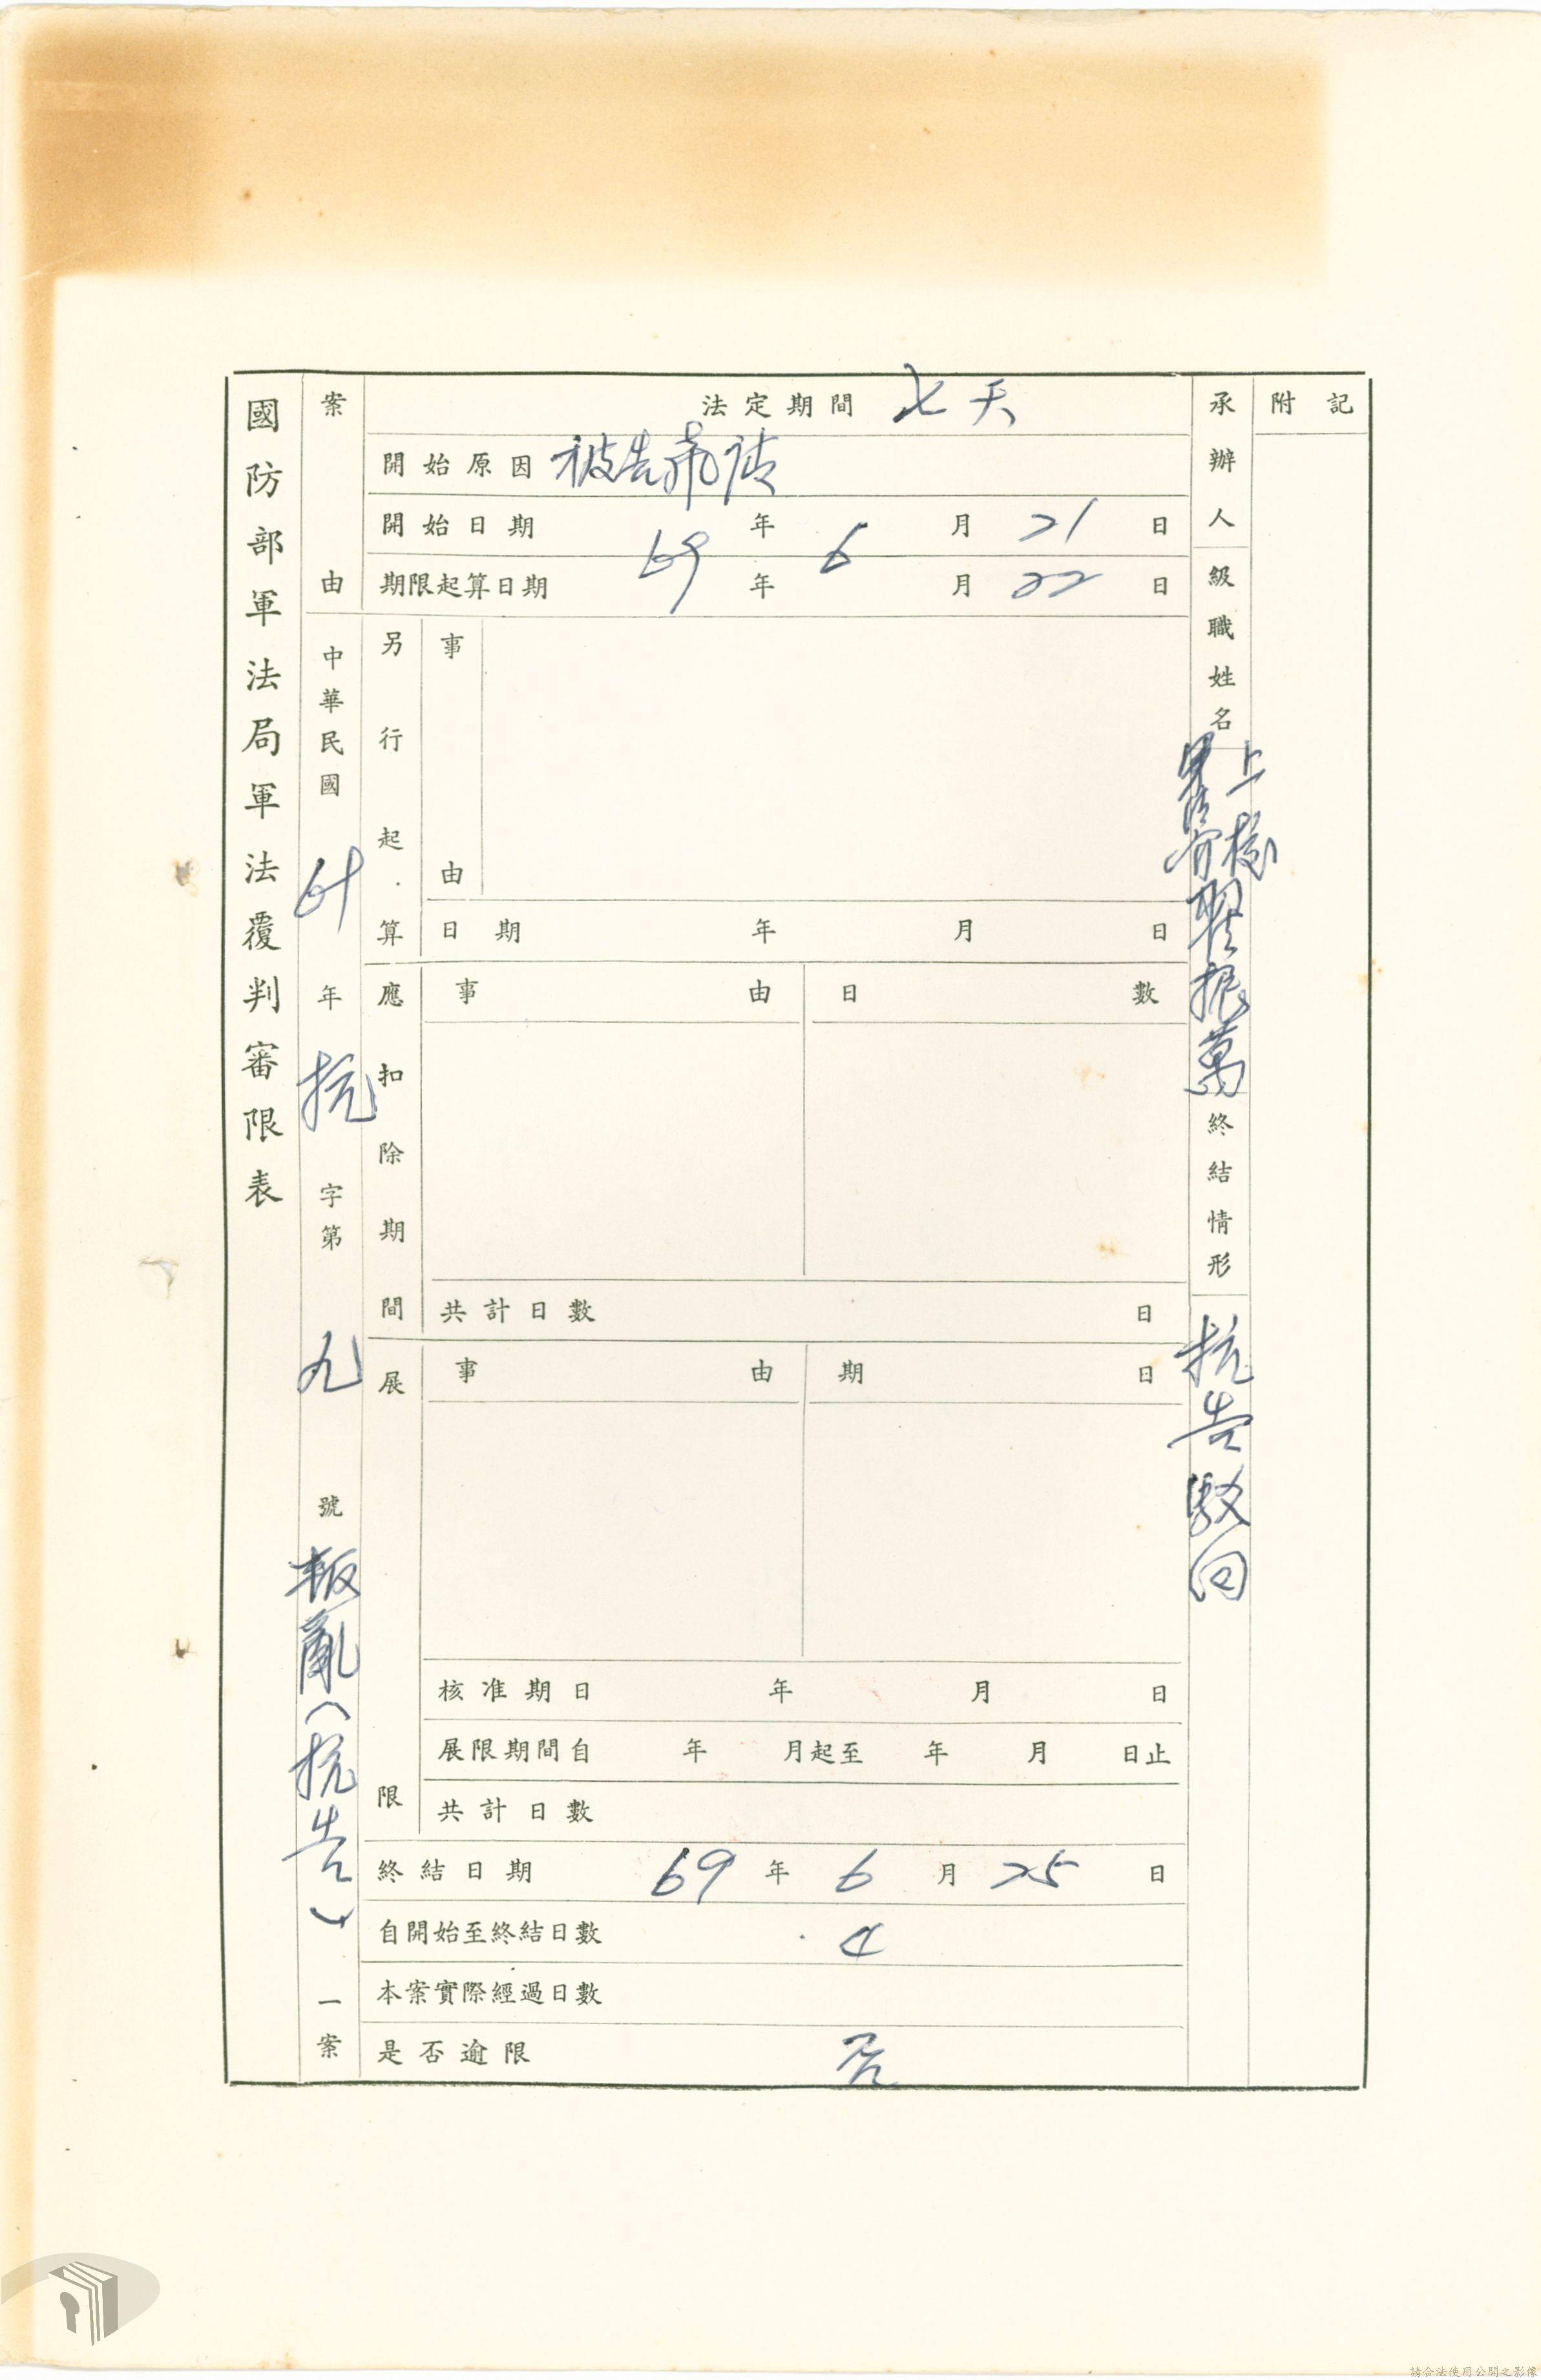 國防部軍法局軍法覆判審限表
案由
中華民國
年
抗
字第
九
號
叛亂(抗告)
一案
法定期間 七天
開始原因 被告聲請
開始日期 69 年 6 月 21 日
期限起算日期 年 月 22 日
另行起算
事由
日期 年 月 日
應扣除期間
事由 日數
共計日數 日
展限
事由 期日
核准期日 年 月 日
展限期間自 年 月起至 年 月 日止
共計日數
終結日期 69 年 6 月 25 日
自開始至終結日數 4
本案實際經過日數
是否逾限 否
承辦人級職姓名
上校
軍法官
振萬
終結情形
抗告駁回
附記
請合法使用公開之影像